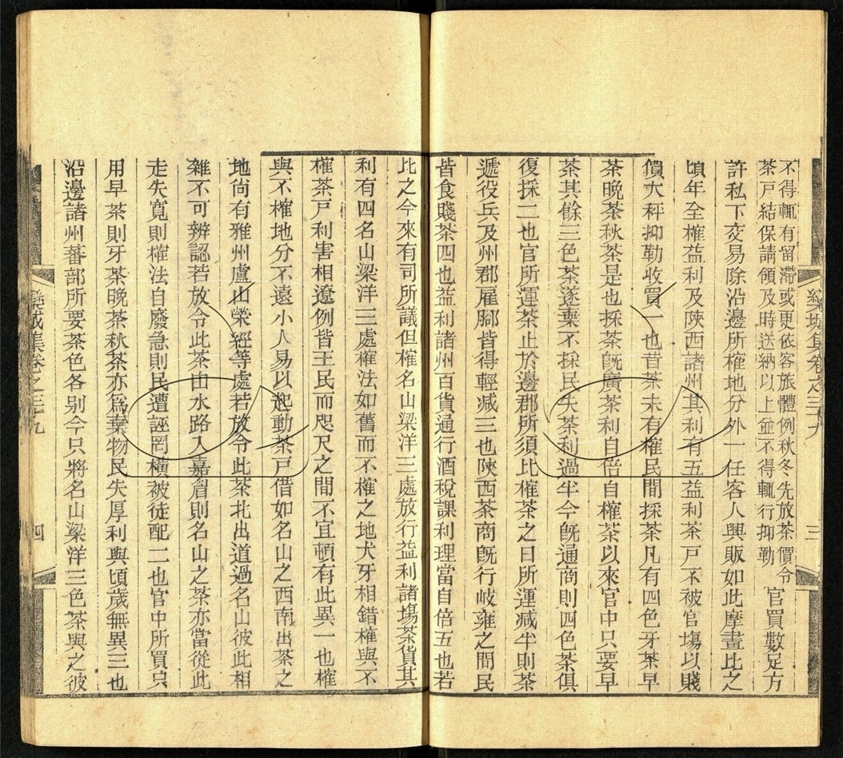 不得輒有留滯或更依客旅體例秋冬先放茶價令
茶戶結保請領及時送納以上並不得輒行抑勒
官買數足方
許私下交易除沿邊所榷地分外一任客人興販如此摩畫比之
頃年全榷益利及陝西諸州其利有五益利茶戶不被官塲以賤
價大秤抑勒收買一也昔茶未有榷民間採茶凡有四色牙茶早
茶晚茶秋茶是也採茶旣廣茶利自倍自榷茶以來官中只要早
茶其餘三色茶遂棄不採民失茶利過半今旣通商則四色茶俱
復採二也官所運茶止於邊郡所須比榷茶之日所運減半則茶
遞役兵及州郡雇腳皆得輕減三也陝西茶商旣行岐雍之間民
皆食賤茶四也益利諸州百貨通行酒稅課利理當自倍五也若
比之今來有司所議但榷名山梁洋三處放行益利諸塲茶貨其
利有四名山梁洋三處榷法如舊而不榷之地犬牙相錯榷與不
榷茶戶利害相遼例皆王民而咫尺之間不宜頓有此異一也榷
與不榷地分不遠小人易以起動茶戶借如名山之西南出茶之
地尙有雅州盧山榮經等處若放令此茶北出道過名山彼此相
雜不可辨認若放令此茶由水路入嘉眉則名山之茶亦當從此
走失寬則榷法自廢急則民遭誣罔橫被徒配二也官中所買只
用早茶則牙茶晚茶秋茶亦爲棄物民失厚利與頃歲無異三也
沿邊諸州蕃部所要茶色各别今只將名山梁洋三色茶與之彼
欒城集卷之三十九
三
欒城集卷之三十九
四